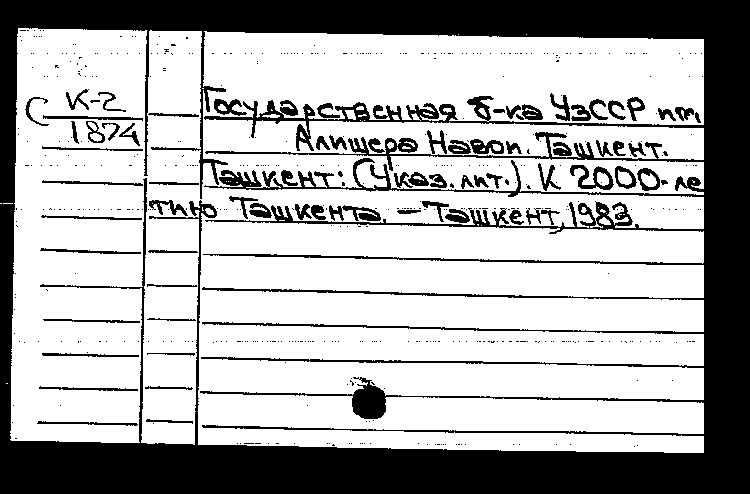 С К-2
1874
Государственная б-ка УзССР им.
Алишера Навои. Ташкент.
Ташкент: (Указ. лит.). К 2000-ле
тию Ташкента. — Ташкент, 1983.